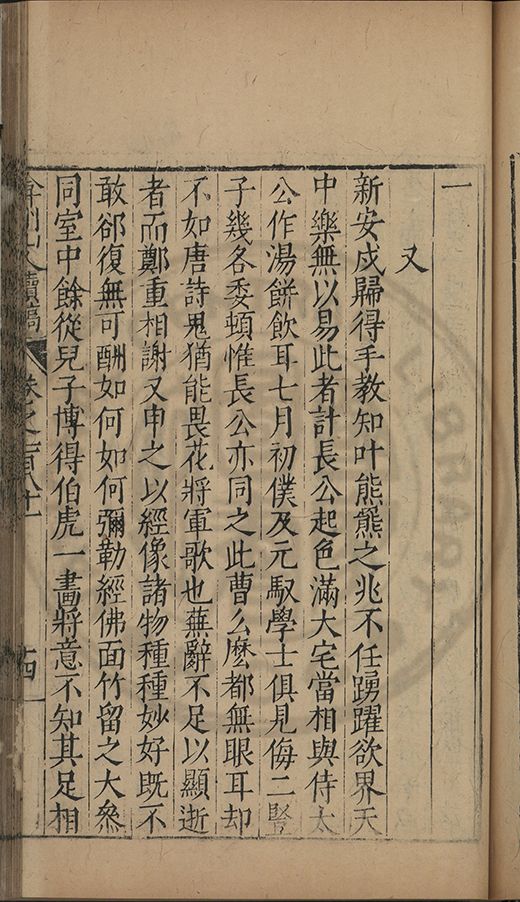 一
又
新安戍歸得手教知叶熊羆之兆不任踴躍欲界天
中樂無以易此者計長公起色滿大宅當相與侍太
公作湯餅飲耳七月初僕及元馭學士俱見侮二豎
子幾各委頓惟長公亦同之此曹么麽都無眼耳却
不如唐詩鬼猶能畏花將軍歌也蕪辭不足以顯逝
者而鄭重相謝又申之以經像諸物種種妙好既不
敢郤復無可酬如何如何彌勒經佛面竹留之大叅
同室中餘從兒子博得伯虎一畫將意不知其足相
弇州山人續稿
卷之一百八十一
十四